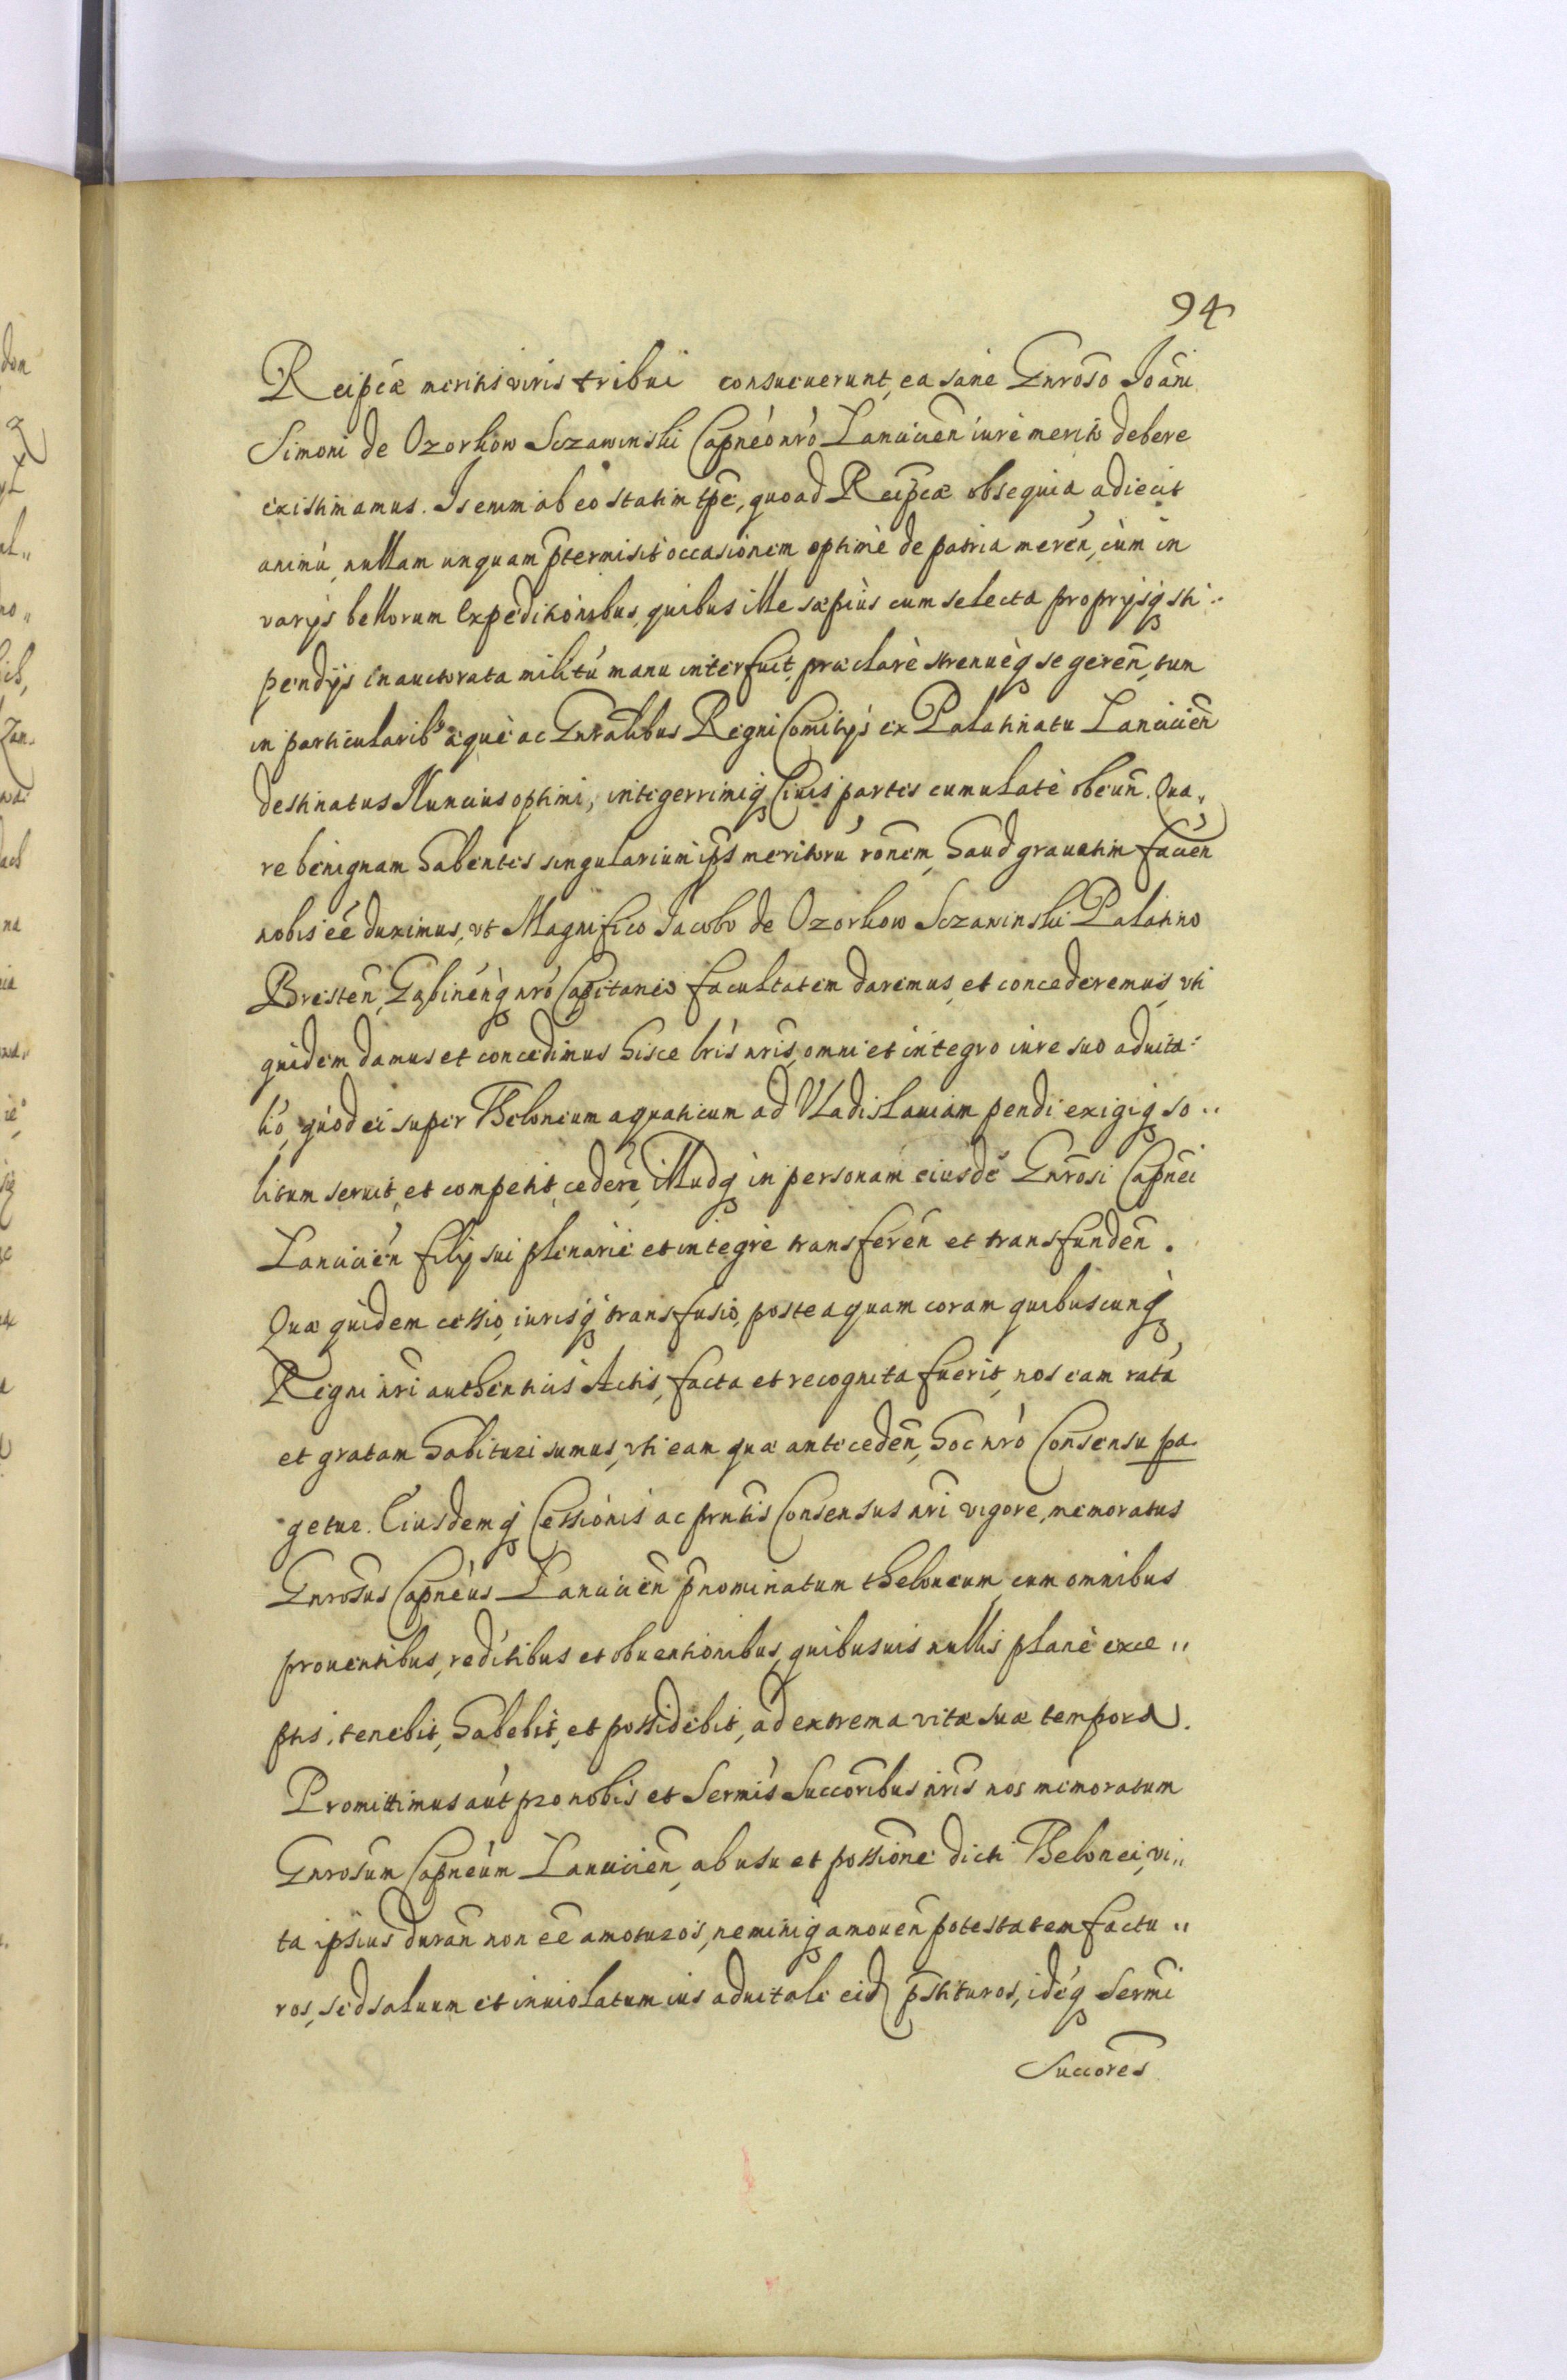 94
Reipcæ meritis viris tribui consueuerunt, ea sane Gnroso Joāni
Simoni de Ozorkow Sczawinski Capneo nro Lanciciēn iure merito debere
existimamus. Is enim ab eo statim tp̄e, quo ad Reipcæ obsequia adiecit
animū, nullam unquam p̄termisit occasionem optimè de patria merēn, cùm in
varijs bellorum Expeditionibus, quibus ille sæpiùs cum selecta proprijsq̨ sti„
pendijs inauctorata militū manu interfuit, præclarè strenueq̨ se gerēn, tum
in particularibꝰ æquè ac Gnralibus Regni Comitijs ex Palatinatu Lanciciēn
destinatus Nuncius optimi, integerrimiq̨ Ciuis partes cumulatè obeun̄. Qua„
re benignam habentes singularium ip̄s meritorū rōnem, haud grauatim faciēn
nobis ēē duximus, vt Magnifico Jacobo de Ozorkow Sczawinski Palatino
Brestēn, Gąbinēnq̨ nro Capitaneo facultatem daremus, et concederemus, vti
quidem damus et concedimus hisce lr̄is nr̄is, omni et integro iure suo aduita„
lio, quod ei super Theloneum aquaticum ad Vladislauiam pendi exigiq̨ so„
litum seruit, et competit, cedere, illudq̨ in personam eiusdē Gnrosi Capnei
Lanciciēn filij sui plenariè et integrè transferēn et transfundēn.
Quæ quidem cessio, iurisq̨ transfusio, posteaquam coram quibuscunq̨
Regni nr̄i authenticis Actis, facta et recognita fuerit, nos eam ratā
et gratam habituri sumus, vti eam quæ antecedēn, hoc nro Consensu pa„
getur. Eiusdemq̨ Cessionis ac prn̄tis Consensus nr̄i vigore, memoratus
Gnrosus Capneus Lanciciēn p̄nominatum theloneum, cum omnibus
prouentibus, reditibus et obuentionibus, quibusuis nullis planè exce„
ptis, tenebit, habebit, et possidebit, ad extrema vitæ suæ tempora.
Promittimus aūt pro nobis et Sermis Succoribus nr̄is nos memoratum
Gnrosum Capneum Lanciciēn, ab usu et possione dicti Thelonei, vi„
ta ipsius durān non ēē amoturos, neminiq̨ amouēn potestatem factu„
ros, sed saluum et inuiolatum ius aduitale eid p̄stituros, idēq̨ Sermi
Succores